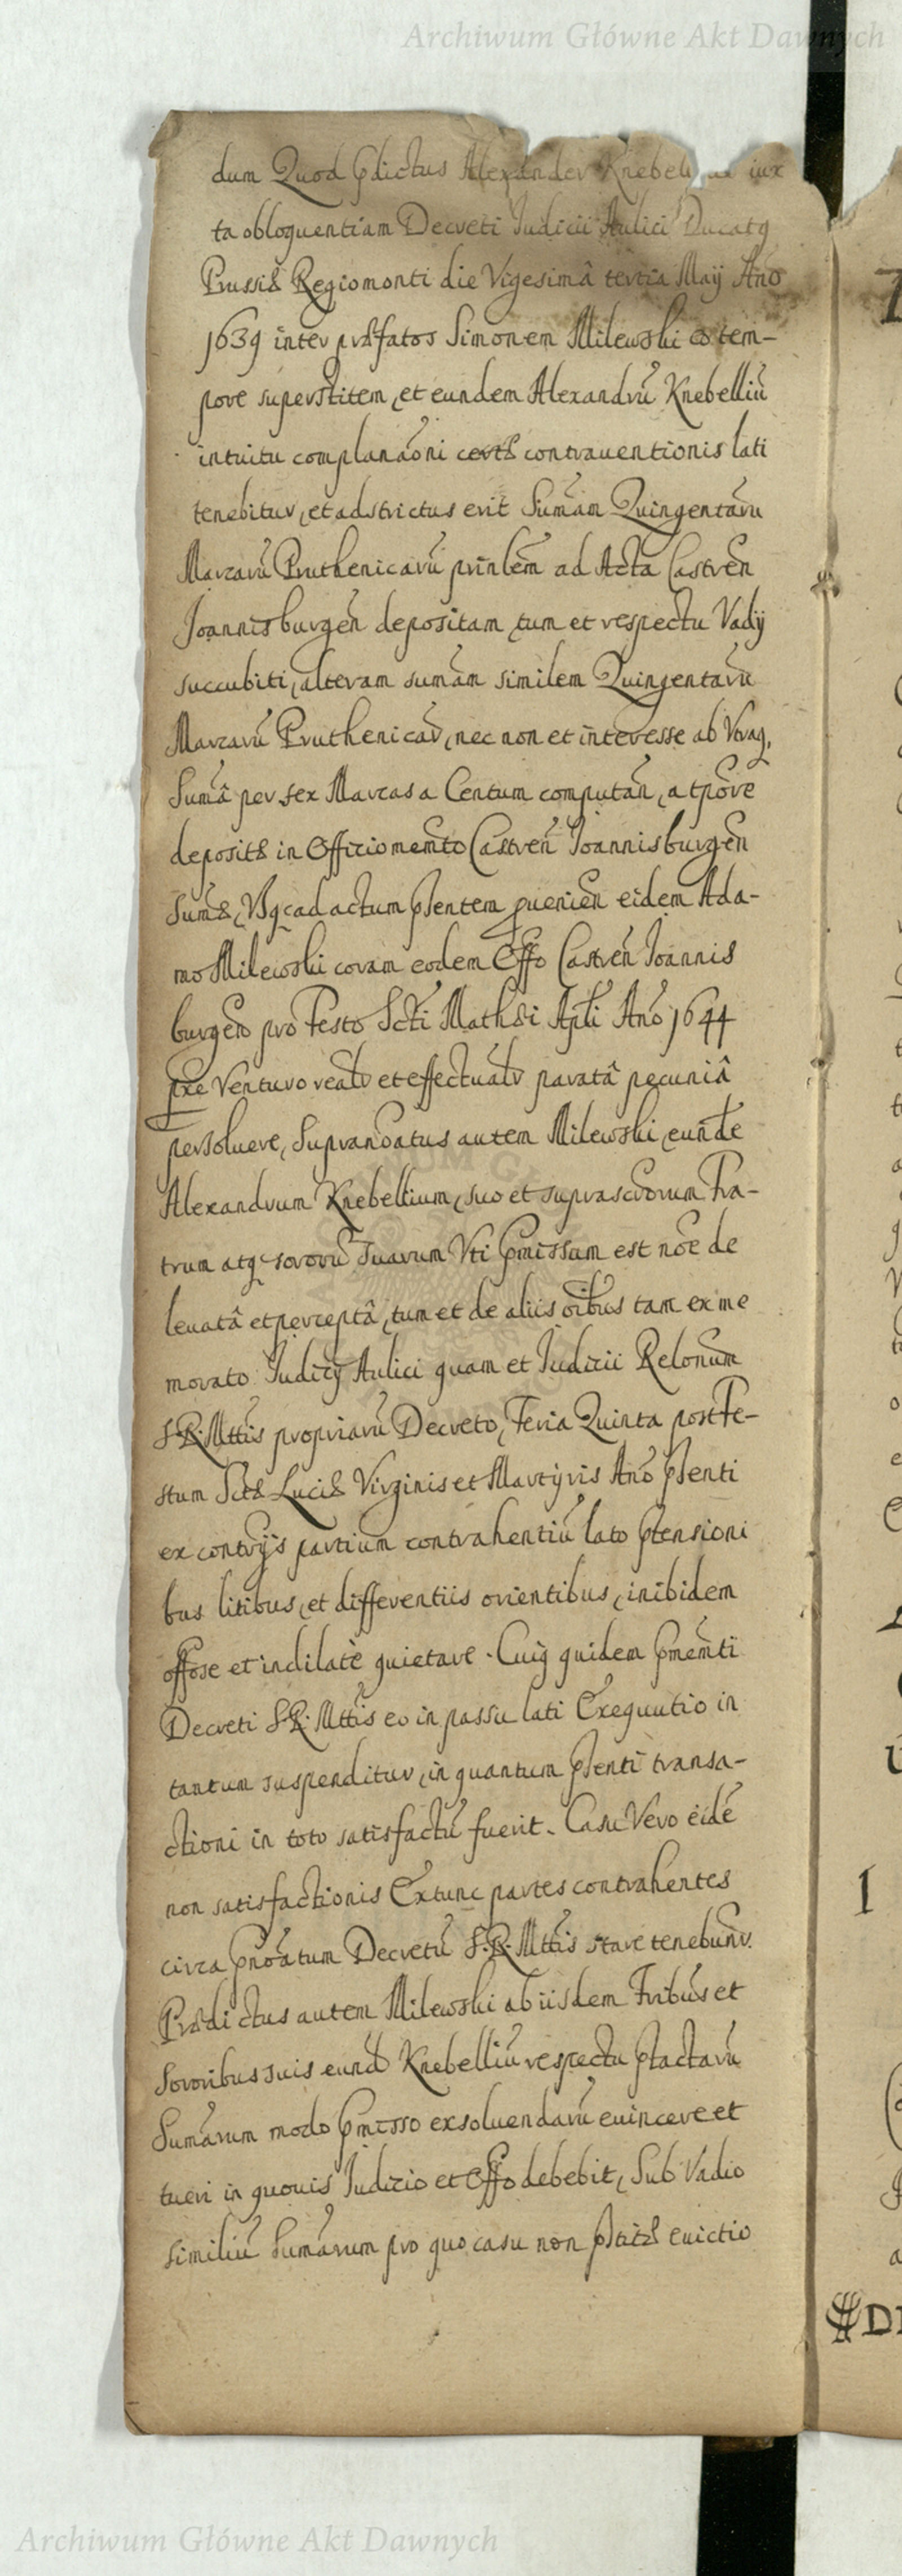 Archiwum Główne Akt Dawnych
dum Quod pdictus Alexander Knebelli iux
ta obloquentiam Decreti Judicii Aulici Ducatq
Prussiæ Regiomonti die Vigesimâ tertia Maij Ano
1639 inter præfatos Simonem Milewski eo tem-
pore superstitem, et eundem Alexandrũ Knebelliũ
intuitu complanaoni certæ contrauentionis lati
tenebitur, et adstrictus erit Sumam Quingentaru
Marcarũ Pruthenicarũ prinlem ad Acta Castren
Joannisburgen depositam, tum et respectu Vadij
succubiti, alteram sumam similem Quingentaru
Marcarũ Pruthenicar, nec non et interesse ab Vtraq,
Sumâ per sex Marcas a Centum computan, a tpore
depositæ in Officio memto Castren Joannisburgen
Sumæ, Vsq ad actum psentem prouenien eidem Ada-
mo Milewski coram eodem Offo Castren Joannis
burgen pro Festo Scti Mathæi Apli Ano 1644
pxe Venturo realr et effectualr paratâ pecuniâ
persoluere, Supranoatus autem Milewski, eunde
Alexandrum Knebellium, suo et suprascrorum Fra-
trum atq sororũ suarum Vti pmissum est noe de
leuatâ et perceptâ, tum et de aliis oibus tam ex me
morato Judicij Aulici quam et Judicii Relonum
S.R.Mttis propriarũ Decreto, Feria Quinta post Fe-
stum Sctæ Luciæ Virginis et Martyris Ano psenti
ex contrijs partium contrahentiũ lato ptensioni
bus litibus, et differentiis orientibus, inibidem
offose et indilatè quietare. Cuiq quidem pmemti
Decreti S.R.Mttis eo in passu lati Exequutio in
tantum suspenditur, in quantum psenti transa-
ctioni in toto satisfactũ fuerit. Casu Vero eidẽ
non satisfactionis Extunc partes contrahentes
circa pnoatum Decretũ S.R.Mttis stare tenebunr.
Prædictus autem Milewski ab iisdem Fribus et
Sororibus suis eund Knebelliũ respectu ptactarũ
Sumarum modo pmisso exsoluendarũ euincere et
tueri in quouis Judicio et Offo debebit, Sub Vadio
similiũ Sumarum pro quo casu non pstitæ euictio
Archiwum Główne Akt Dawnych